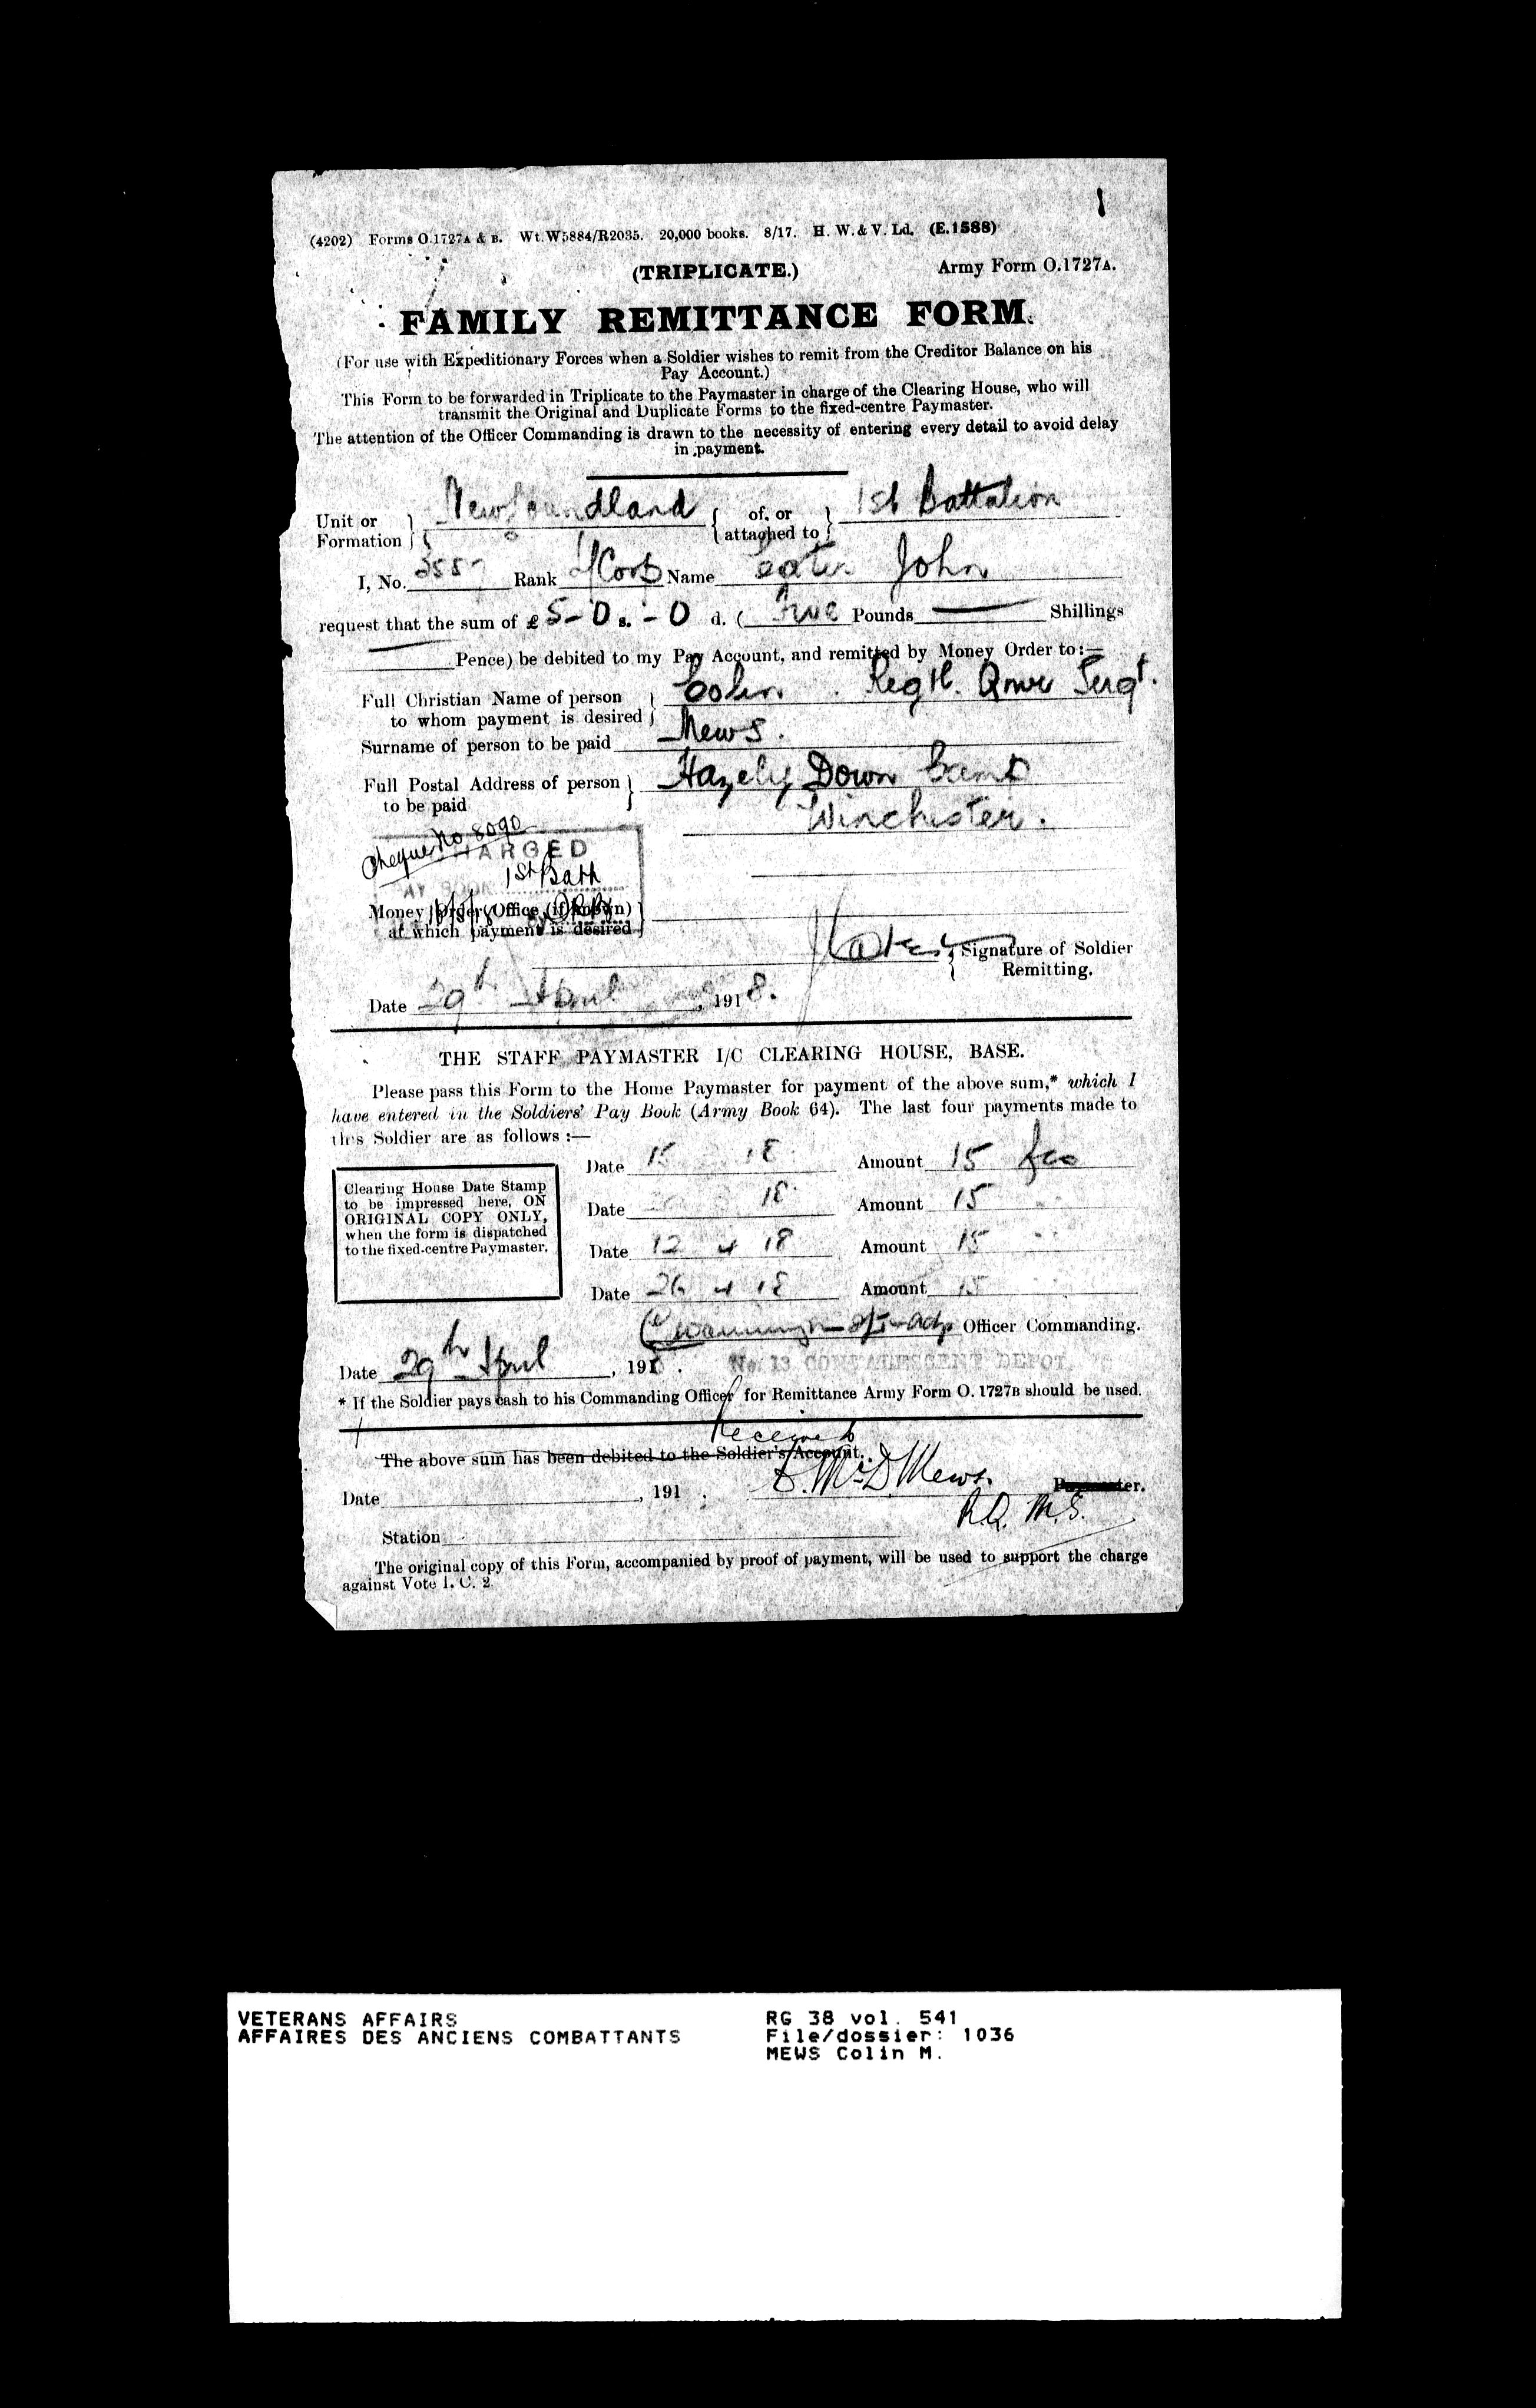 (4202) Forms O.1727A & B. Wt.W5884/R2035. 20,000 books. 8/17. H. W. & V. Ld. (E.1588)
(TRIPLICATE.) Army Form O.1727A.
FAMILY REMITTANCE FORM.
(For use with Expeditionary Forces when a Soldier wishes to remit from the Creditor Balance on his
Pay Account.)
This Form to be forwarded in Triplicate to the Paymaster in charge of the Clearing House, who will
transmit the Original and Duplicate Forms to the fixed-centre Paymaster.
The attention of the Officer Commanding is drawn to the necessity of entering every detail to avoid delay
in payment.
Unit or Formation } Newfoundland { of, or attached to } 1st Battalion
I, No. Rank L/Corp Name John
request that the sum of £ 5 - 0 s. - 0 d. ( Five Pounds Shillings
Pence) be debited to my Pay Account, and remitted by Money Order to :—
Full Christian Name of person to whom payment is desired } Colin . Regtl. Qmr Sergt.
Surname of person to be paid Mews .
Full Postal Address of person to be paid } Hazely Down Camp
Winchester .
Cheque No 8090
CHARGED
1st Batt
Money Order Office (if known)
at which payment is desired }
Signature of Soldier
Remitting.
Date 29th April , 1918.
THE STAFF PAYMASTER I/C CLEARING HOUSE, BASE.
Please pass this Form to the Home Paymaster for payment of the above sum,* which I
have entered in the Soldiers' Pay Book (Army Book 64). The last four payments made to
this Soldier are as follows :—
Clearing House Date Stamp
to be impressed here, ON
ORIGINAL COPY ONLY,
when the form is dispatched
to the fixed-centre Paymaster.
Date 15 18 Amount 15 fcs
Date 18 Amount 15
Date 12 4 18 Amount 15
Date 26 4 18 Amount 15
Officer Commanding.
Date 29th April , 1918 . No. 13 CONVALESCENT DEPOT
* If the Soldier pays cash to his Commanding Officer for Remittance Army Form O. 1727B should be used.
Received
The above sum has been debited to the Soldier's Account.
Date , 191 . C. McD Mews. Paymaster.
R.Q.M.S.
Station
The original copy of this Form, accompanied by proof of payment, will be used to support the charge
against Vote 1. C. 2
VETERANS AFFAIRS RG 38 vol. 541
AFFAIRES DES ANCIENS COMBATTANTS File/dossier: 1036
MEWS Colin M.